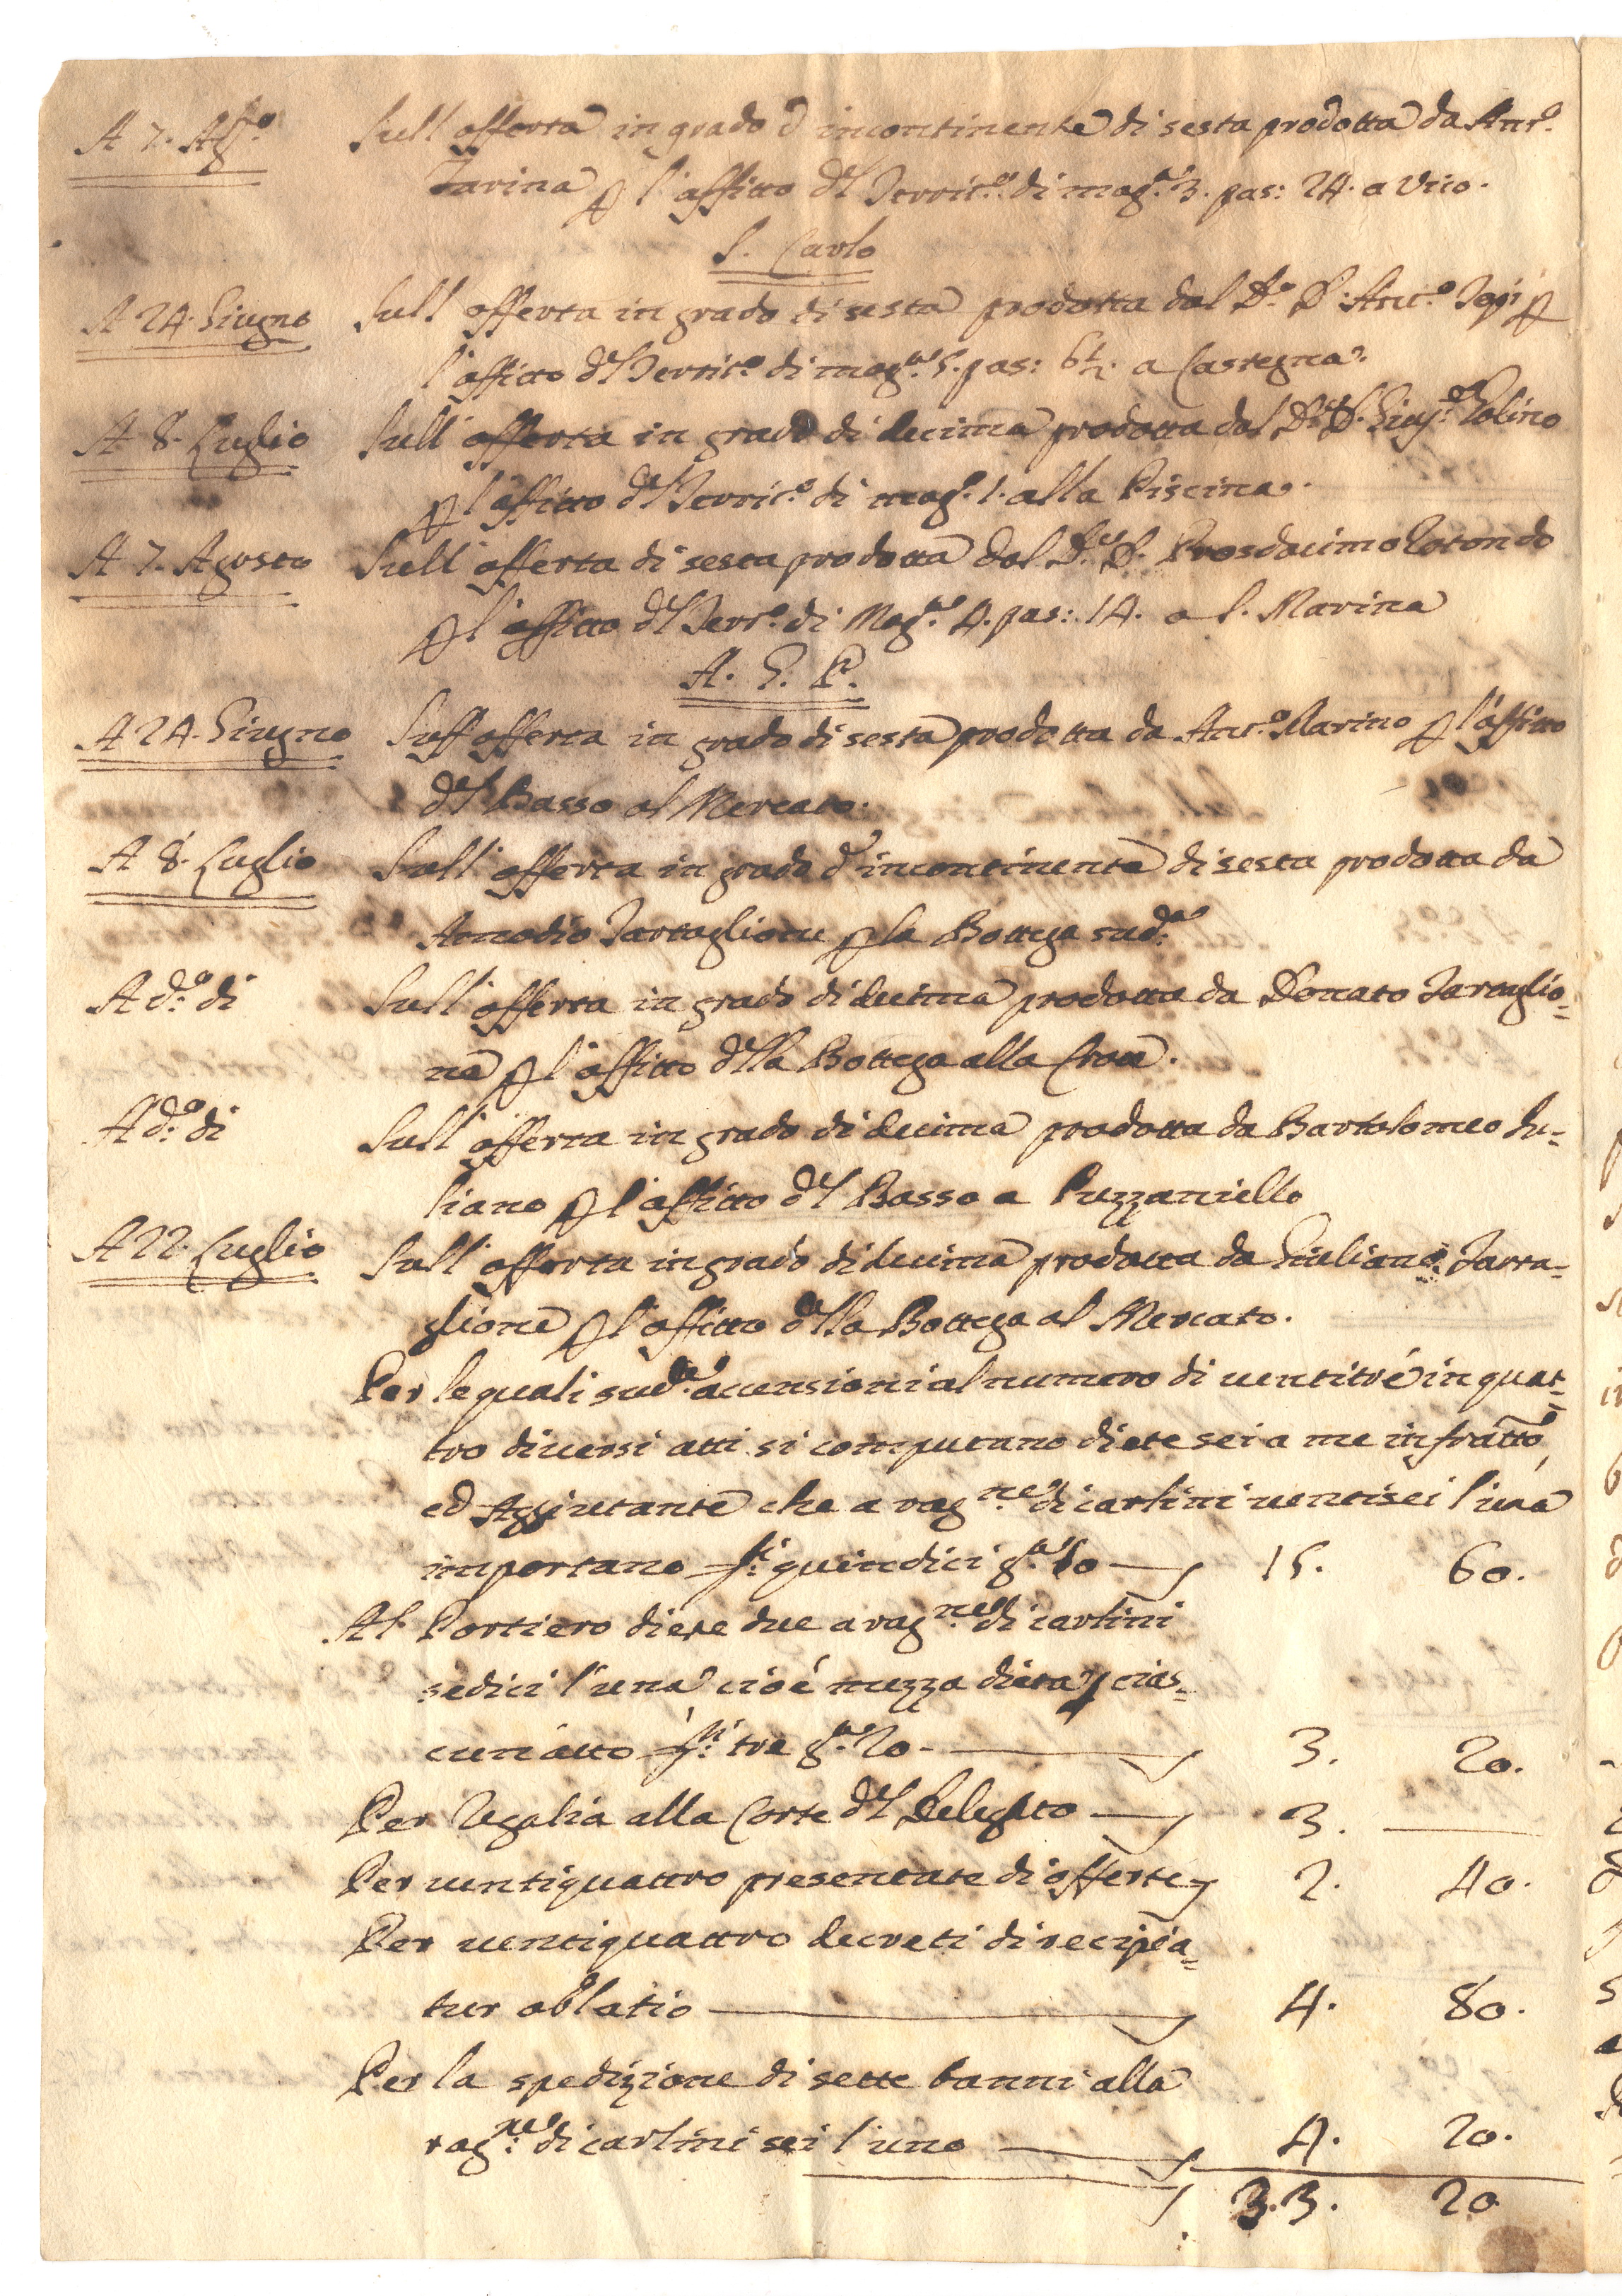 A 7. Ag.to Sull'offerta in grado d'incontinente di sesta prodotta da Ant.o
Farina p l'affitto d'l Territ.o di mog.a 3. pas: 24. a Vico.
S. Carlo
A 24. Giugno Sull'offerta in grado di sesta prodotta dal D.r D. Ant.o p
l'affitto d'l Territ.o di mog.a 5. pas: a Castegna
A 8. Luglio Sull'offerta in grado di decima prodotta dal D.r D. Gius.e Golino
p l'affitto d'l Territ.o di mog.o 1. alla Piscina.
A 7. Agosto Sull'offerta di sesta prodotta dal D.r D. Prosdocimo Rotondo
p l'affitto d'l Terr.o di Mog.a 4. pas: 14. a S. Marina
A. G. P.
A 24. Giugno Sull'offerta in grado di sesta prodotta da Ant.o Marino p l'affitto
d'l Basso al Mercato.
A 8. Luglio Sull'offerta in grado d'incontinente di sesta prodotta da
Amodio Tartaglione p la Bottega sud.a
A d.o di Sull'offerta in grado di decima prodotta da Donato Tartaglio=
ne p l'affitto d'lla Bottega alla Croce.
A d.o di Sull'offerta in grado di decima prodotta da Bartolomeo Iu=
liano p l'affitto d'l Basso a Puzzaniello
A 22. Luglio Sull'offerta in grado di decima prodotta da Giuliano Tarta=
glione p l'affitto d'lla Bottega al Mercato.
Per le quali sud.e accensioni al numero di ventitré in quat=
tro diversi atti si computano diete sei a me infratto,
ed Aggiutante che a rag.ne di carlini ventisei l'una
importano d.ti quindici g.a 60 — 15. 60.
Al Portiero diete due a rag.ne di carlini
sedici l'una cioè mezza dieta p cias=
cun atto d.ti tre g.a 20. — 3. 20.
Per Regalia alla Corte d'l Delegato — 3. —
Per ventiquattro presentate di offerte 2. 40.
Per ventiquattro decreti di recipia=
tur oblatio — 4. 80.
Per la spedizione di sette banni alla
rag.ne di carlini sei l'uno — 4. 20.
33. 20